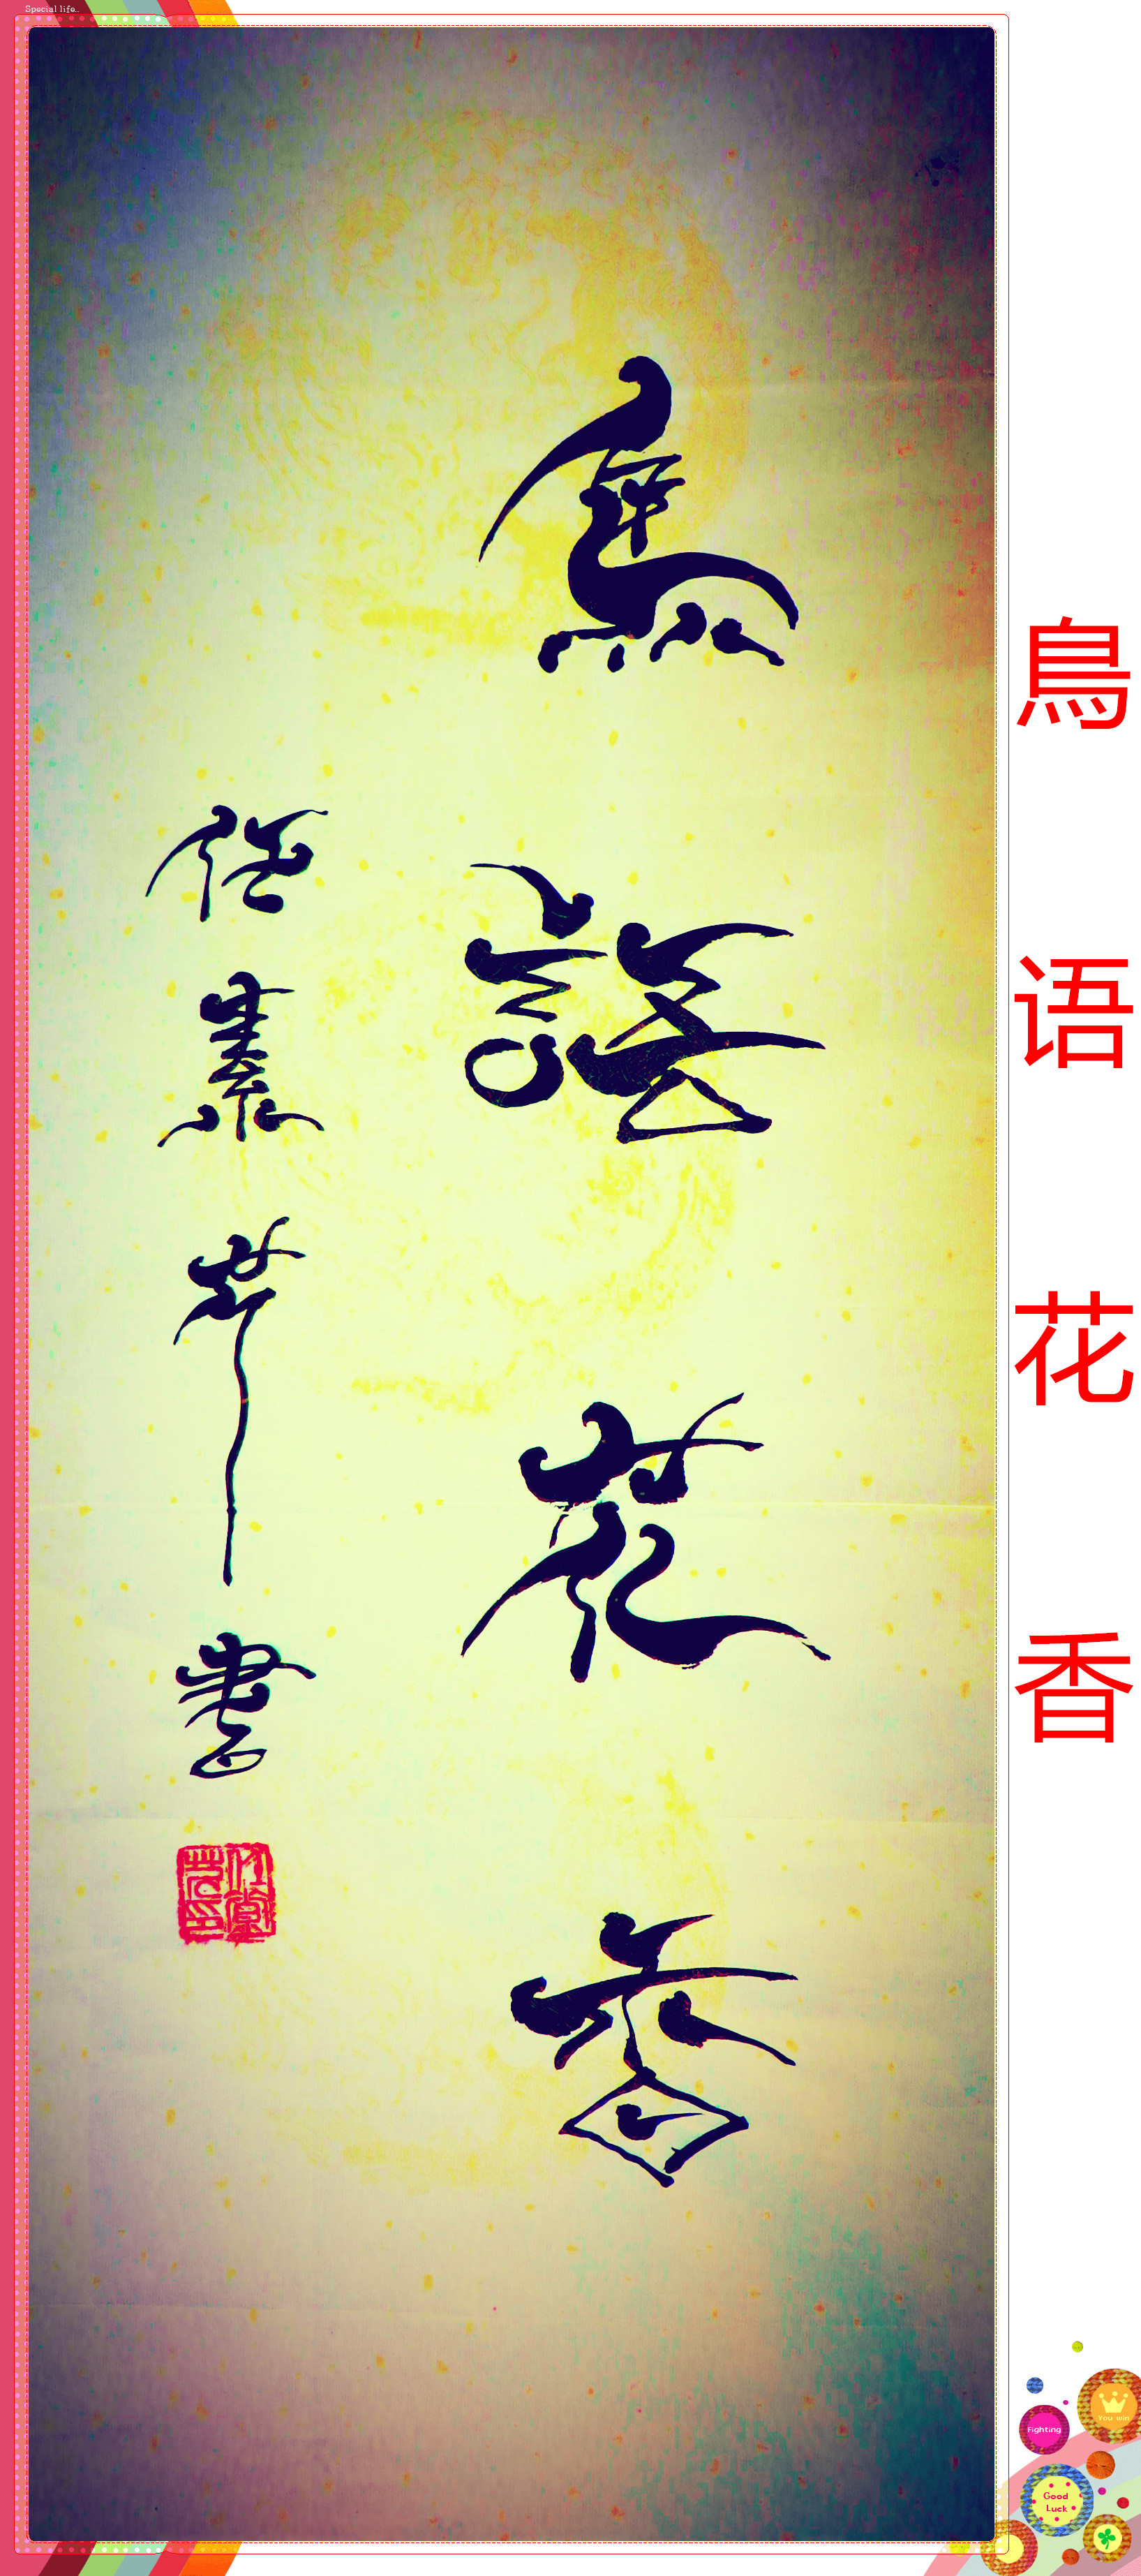 Special life..
鳥
语
花
香
鳥
語
花
香
任
書
You win
Fighting
Good
Luck